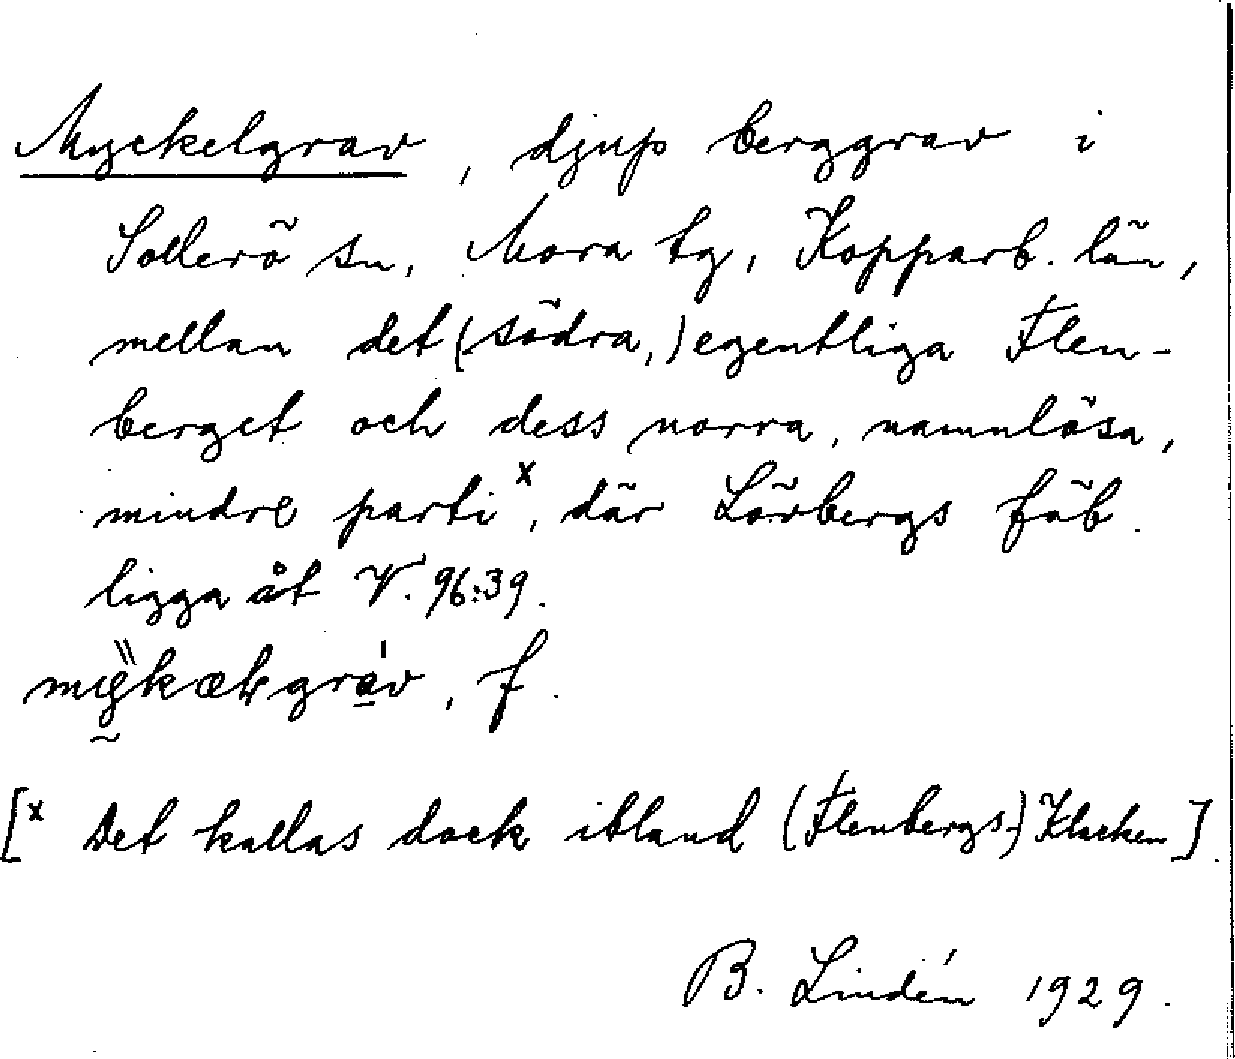 Myckelgrav, djup berggrav i
Sollerö sn, Mora tg, Kopparb. län,
mellan det (södra,) egentliga Flen-
berget och dess norra, namnlösa,
mindre parti x, där Lövbergs fäb.
ligga åt V. 96:39.
f.
[x Det kallas dock ibland (Flenbergs-) Klacken].
B. Lindén 1929.